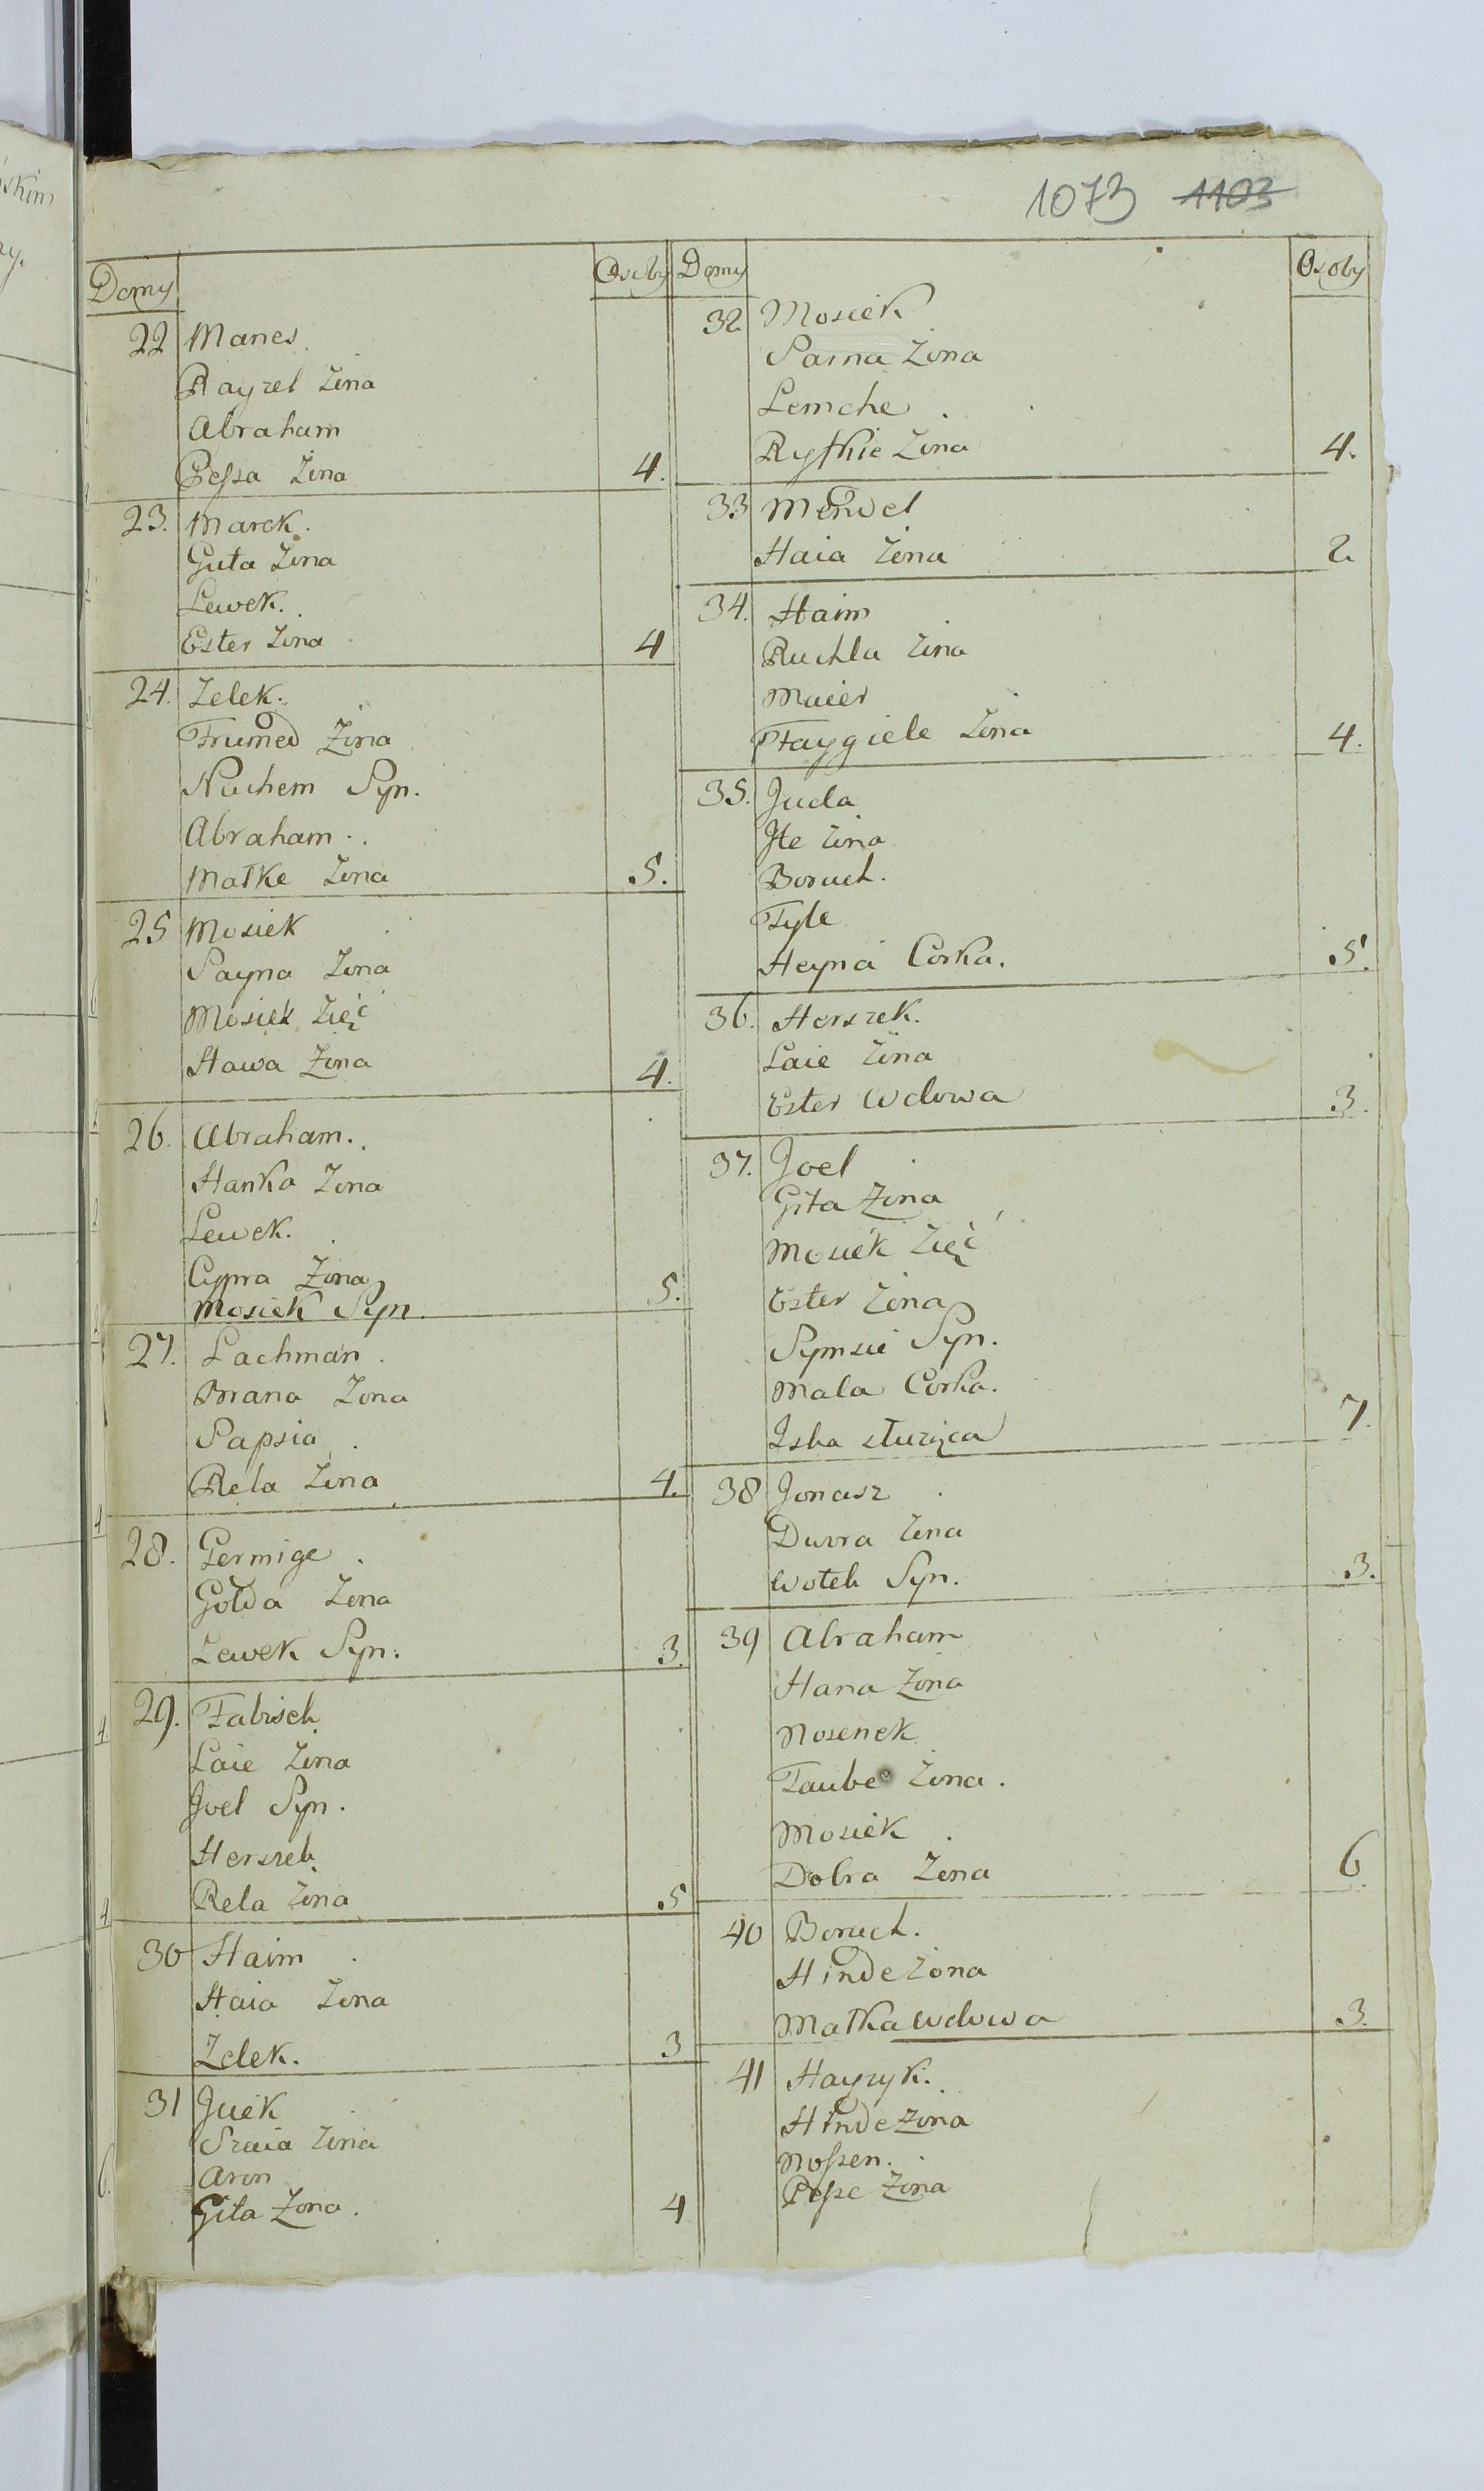 1073 1103
Domy Osoby
22 Manes
Rayzel Żona
Abraham
Pessa Żona 4.
23. Marek.
Guta Żona
Lewek.
Ester Żona 4
24. Zelek.
Frumed Żona
Nuchem Syn.
Abraham.
Matke Żona 5.
25 Mosiek
Payna Żona
Mosiek Zięć
Hawa Żona 4.
26. Abraham.
Hanka Żona
Lewek.
Cypra Żona
Mosiek Syn. 5.
27. Lachman
Briana Żona
Papsia
Rela Żona 4.
28. Germige
Golda Żona
Lewek Syn: 3.
29. Fabisch
Laie Żona
Joel Syn.
Herszek
Rela Żona 5
30 Haim
Haia Żona
Zelek. 3
31 Jcek
Sraia Żona
Aron
Gita Żona. 4
Domy Osoby
32 Mosiek
Parna Żona
Lemche
Ryfkie Żona 4.
33 Mendel
Haia Żona 2
34. Haim
Ruchla Żona
Maier
Faygiele Żona 4.
35. Juda
Jte Żona
Boruch.
Tyle
Heyna Corka. 5.
36. Herszek.
Laie Żona
Ester Wdowa 3.
37. Joel
Gita Żona
Mosiek Zięć
Ester Żona
Symsie Syn.
Mala Corka.
służąca 7.
38 Jonasz
Dwora Żona
Wolek Syn. 3.
39 Abraham
Hana Żona
Nosenek
Taube Żona.
Mosiek
Dobra Żona 6
40 Boruch.
Hinde Żona
Matka Wdowa 3.
41 Hayzyk.
Hinde Żona
Nossen.
Pesse Żona